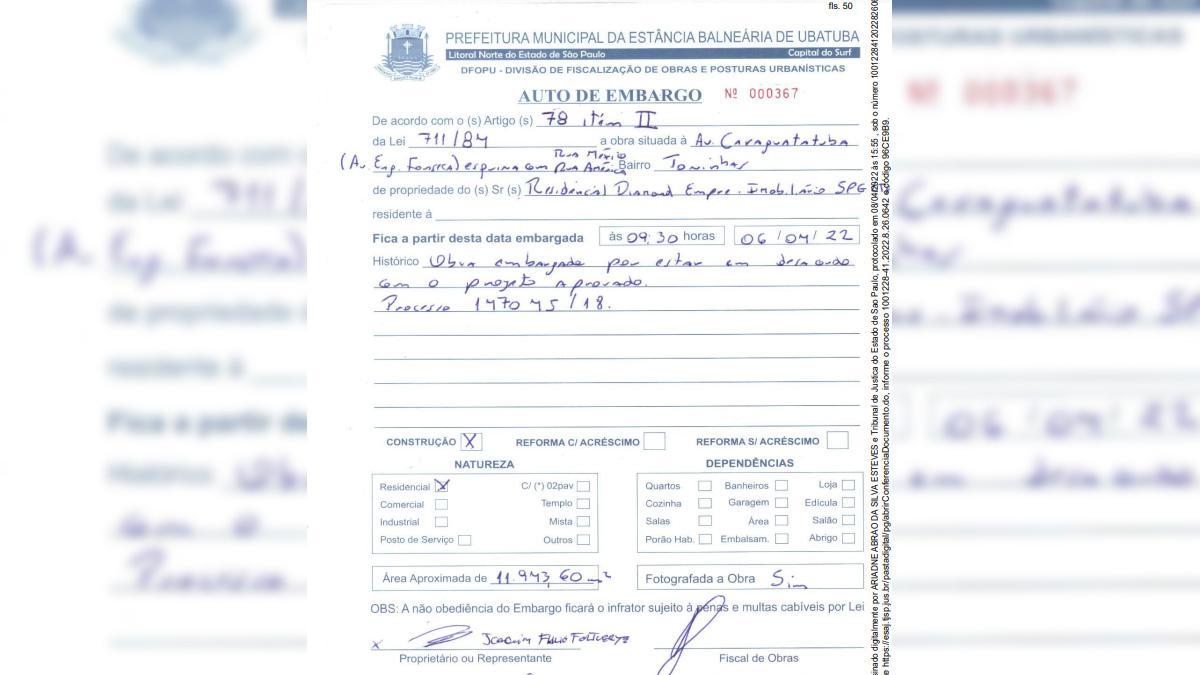 fls. 50
PREFEITURA MUNICIPAL DA ESTÂNCIA BALNEÁRIA DE UBATUBA
Litoral Norte do Estado de São Paulo Capital do Surf
DFOPU - DIVISÃO DE FISCALIZAÇÃO DE OBRAS E POSTURAS URBANÍSTICAS
AUTO DE EMBARGO Nº 000367
De acordo com o (s) Artigo (s) 78 itém II
da Lei 711/84 a obra situada à Av. Caraguatatuba
(Av. Eng. Fonseca) esquina com Rua México Rua América Bairro Toninhas
de propriedade do (s) Sr (s) Residencial Diamond Empre. Imobiliário SPE
residente à
Fica a partir desta data embargada às 09:30 horas 06/04/22
Histórico Obra embargada por estar em desacordo
com o projeto aprovado.
Processo 14045/18.
CONSTRUÇÃO X REFORMA C/ ACRÉSCIMO REFORMA S/ ACRÉSCIMO
NATUREZA
Residencial X C/ (*) 02pav
Comercial Templo
Industrial Mista
Posto de Serviço Outros
DEPENDÊNCIAS
Quartos Banheiros Loja
Cozinha Garagem Edícula
Salas Área Salão
Porão Hab. Embalsam. Abrigo
Área Aproximada de 11.943,60 m²
Fotografada a Obra Sim
OBS: A não obediência do Embargo ficará o infrator sujeito à penas e multas cabíveis por Lei
x Joaquim Flavio
Proprietário ou Representante
Fiscal de Obras
sinado digitalmente por ARIADNE ABRAO DA SILVA ESTEVES e Tribunal de Justica do Estado de Sao Paulo, protocolado em 08/04/2022 às 15:55 , sob o número 1001228412022826
e https://esaj.tjsp.jus.br/pastadigital/pg/abrirConferenciaDocumento.do, informe o processo 1001228-41.2022.8.26.0642 e código 96CE9B9.